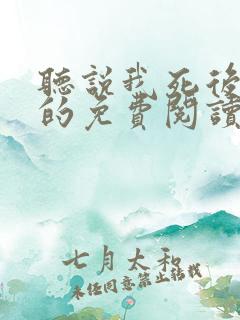 聽說我死後
的免費閱讀
七月太和
未任同意禁止轉載